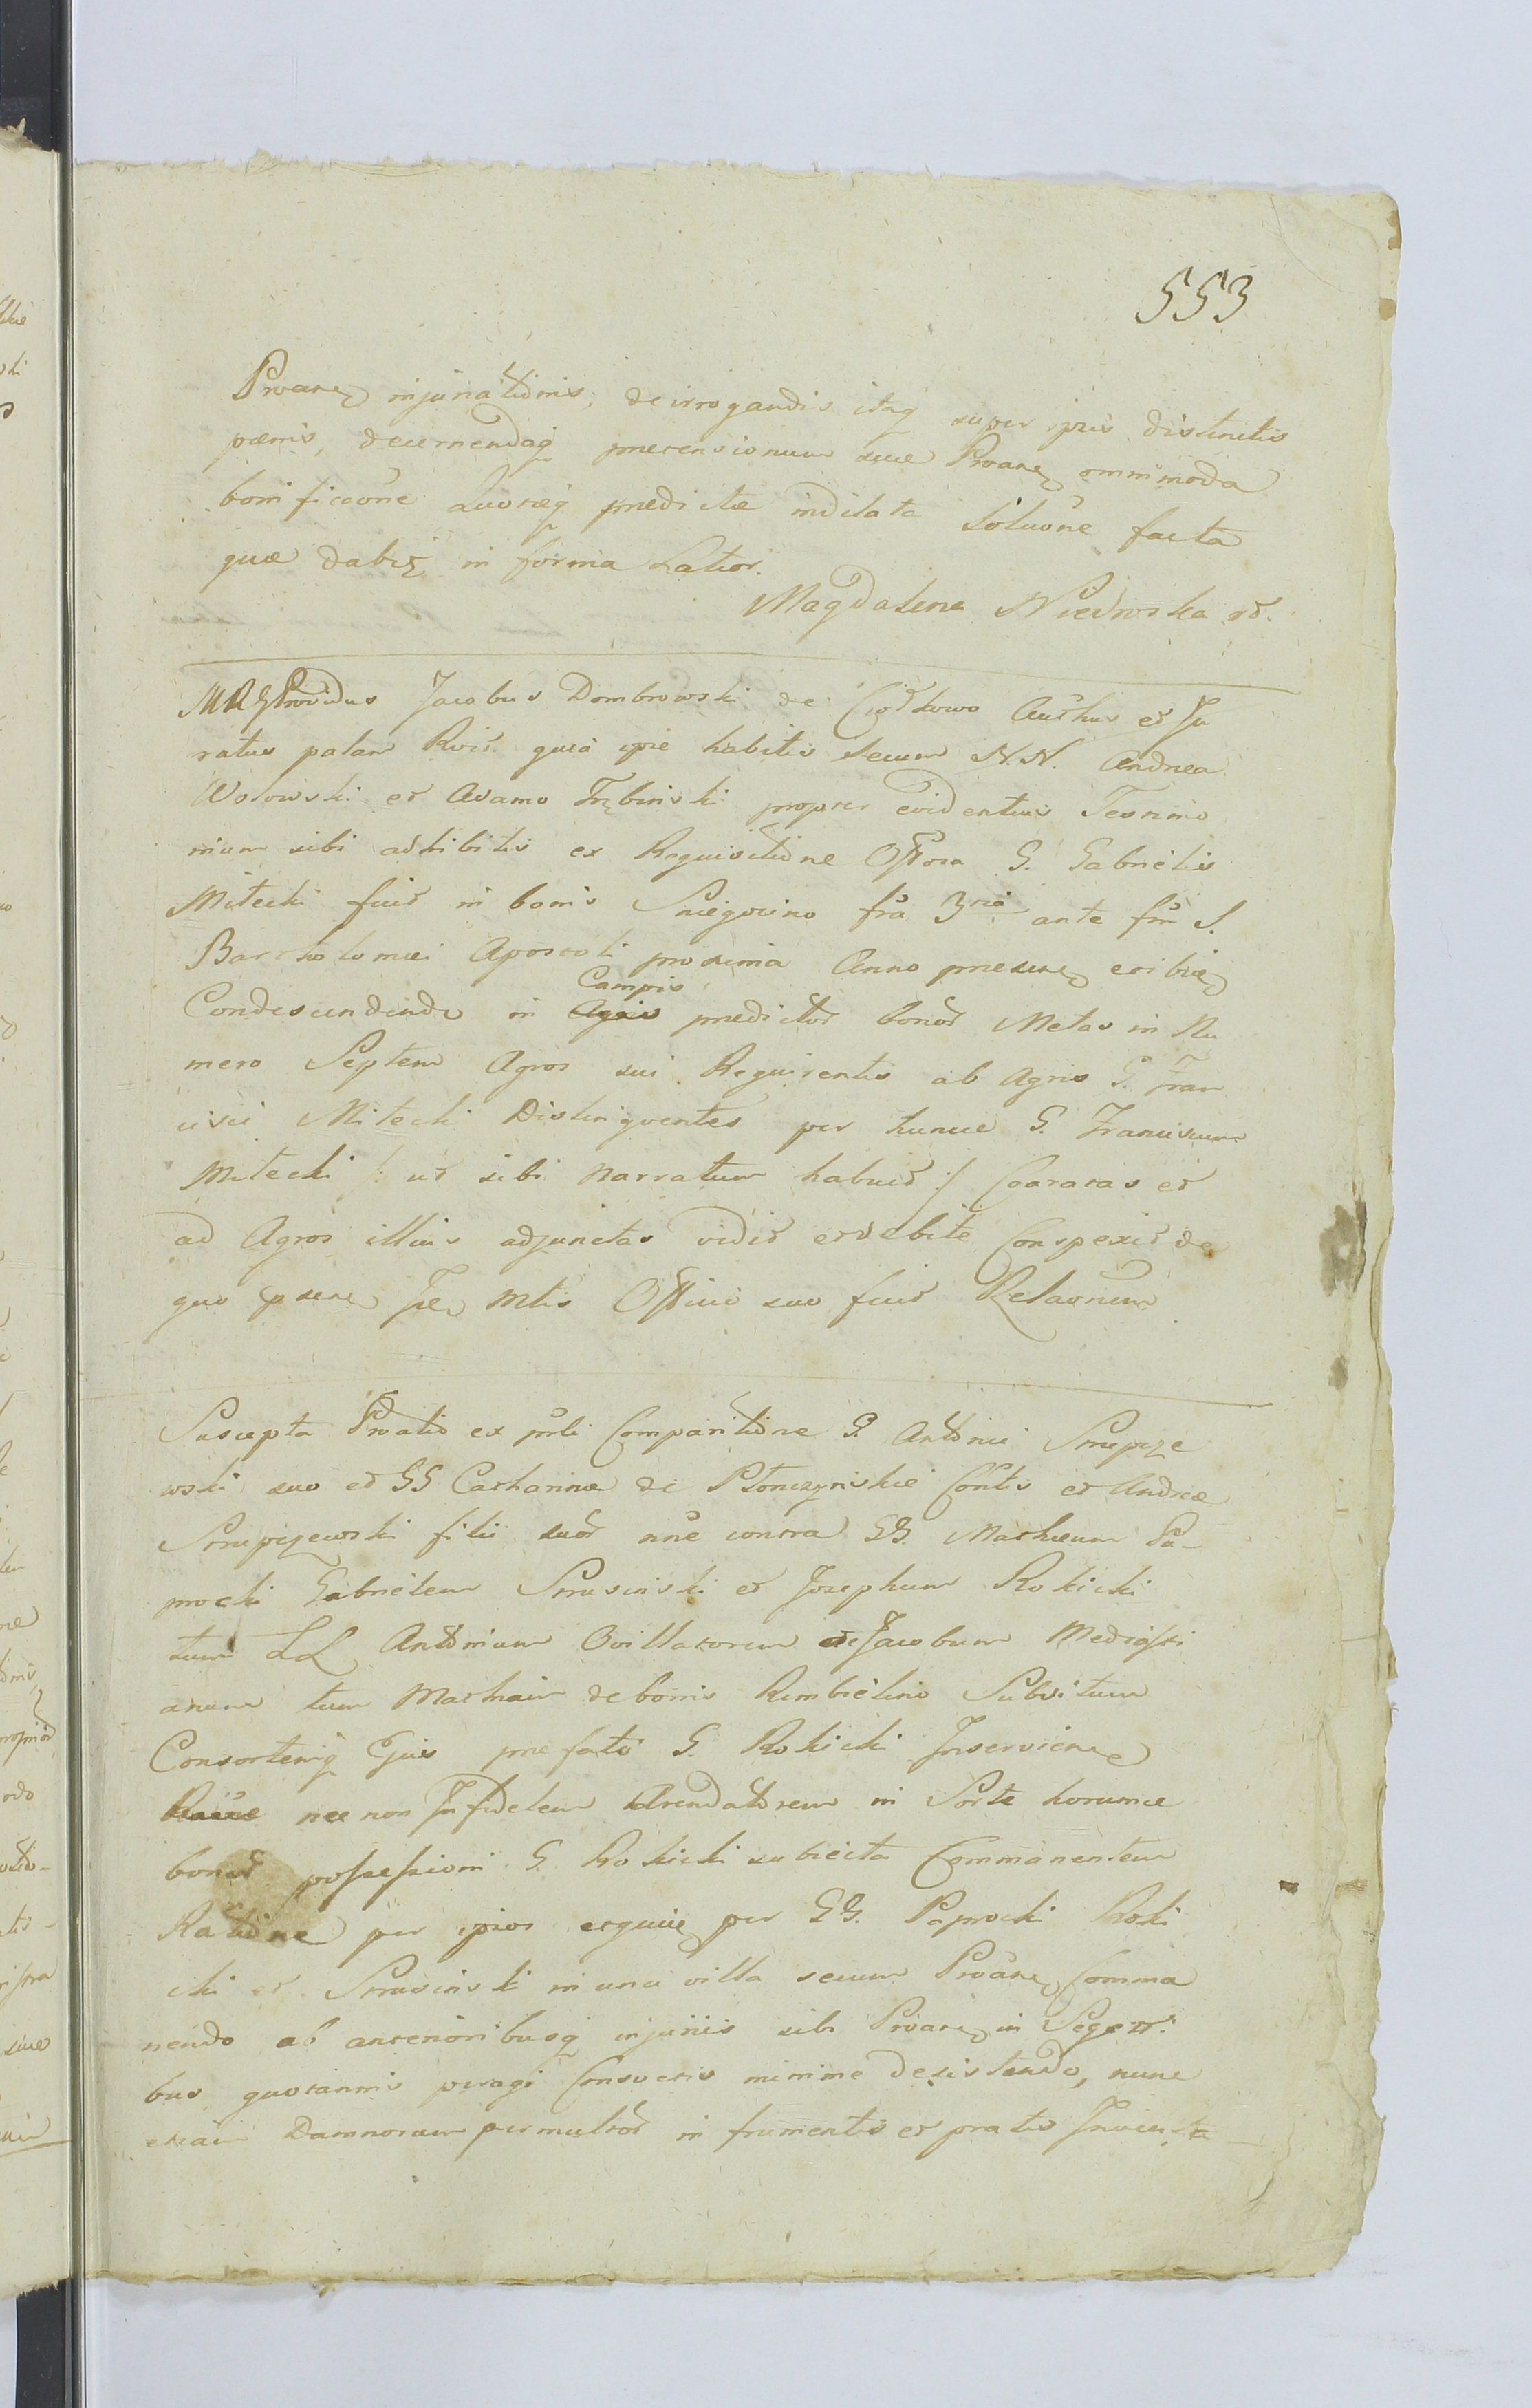 553
Proane injuriationis, de irrogandis itaq super ipsis distinctis
pænis, decernendaq prætensionum suæ Proane omnimoda
bonificaone Quotæq prædictæ indilata soluone facta
quæ dabit in forma Latior.
Magdalena
MRG Providus Jacobus Dombrowski de Ciotkowo Authus et Ju
ratus palam quia ipse habitis secum N.N. Andrea
Wolowski et Adamo Trębinski propter evidentius Testimo
nium sibi adhibitis ex Requisitione G. Gabrielis
Mitecki fuit in bonis Sniegocino fra 3tia ante fm S.
Bartholomæi Apostoli proxima Anno præsene et ibiq
Condescendendo in Campis Agris prædictor bonor Metas in Nu
mero Septem Agros sui Requirentis ab Agris G. Fran
cisci Mitecki Distinguentes per hunce G. Franciscum
Mitecki /: ut sibi Narratum habuit :/ Coaratas et
ad Agros illius adjunctas vidit et debite Conspexit de
quo præsene Officii suo fuit Relaonem
Suscepta Protatio ex psnli Comparitione G. Antonii Strupcze
wski suo et GG Catharinæ de Płonczynskie Contis et Andreæ
Strupczewski filii suor nne contra GG. Mathæum Pa-
procki Gabrielem Strusinski et Josephum Rokicki
tum LL Antonium Ovillatorem et Jacobum
anum tum Mathiam de bonis Rembielino Subditum
Consortemq Ejus præfato G. Rokicki Inserviene
nec non Infidelem Arendatorem in Sorte horumce
bonor possessioni G. Rokicki subiecta Commanentem
Ratione per ipsos per GG. Paprocki Roki
cki et Strusinski in una villa secum Proane Comma
nendo ab anterioribusq injuriis sibi Proane in Segeti
bus quotannis peragi Consvetis minime desistendo, nunc
etiam Damnorum permultor in frumentis et pratis